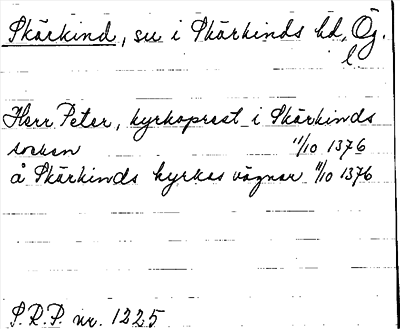 Skärkind, sn i Skärkinds hd, Ög.
l
Herr Peter, kyrkoprest i Skärkinds
socken 11/10 1376
å Skärkinds kyrkas vägnar 11/10 1376
S.R.P. nr. 1225